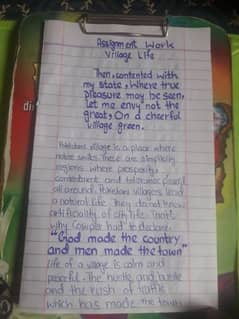 Assignment Work
Village Life
Then, contented with
my state, where true
pleasure may be seen,
let me envy not the
great, On a cheerful
village green.
village is a place where
These are simplicity
regions where prosperity,
contentment and tolerance
all around. villagers lead
a natural life. They do not know
artificiality of city life. That's
why Cowper had to declare,
"God made the country
and men made the town"
Life of a village is calm and
peaceful. The hustle and bustle
and the rush of traffic
which has made the town